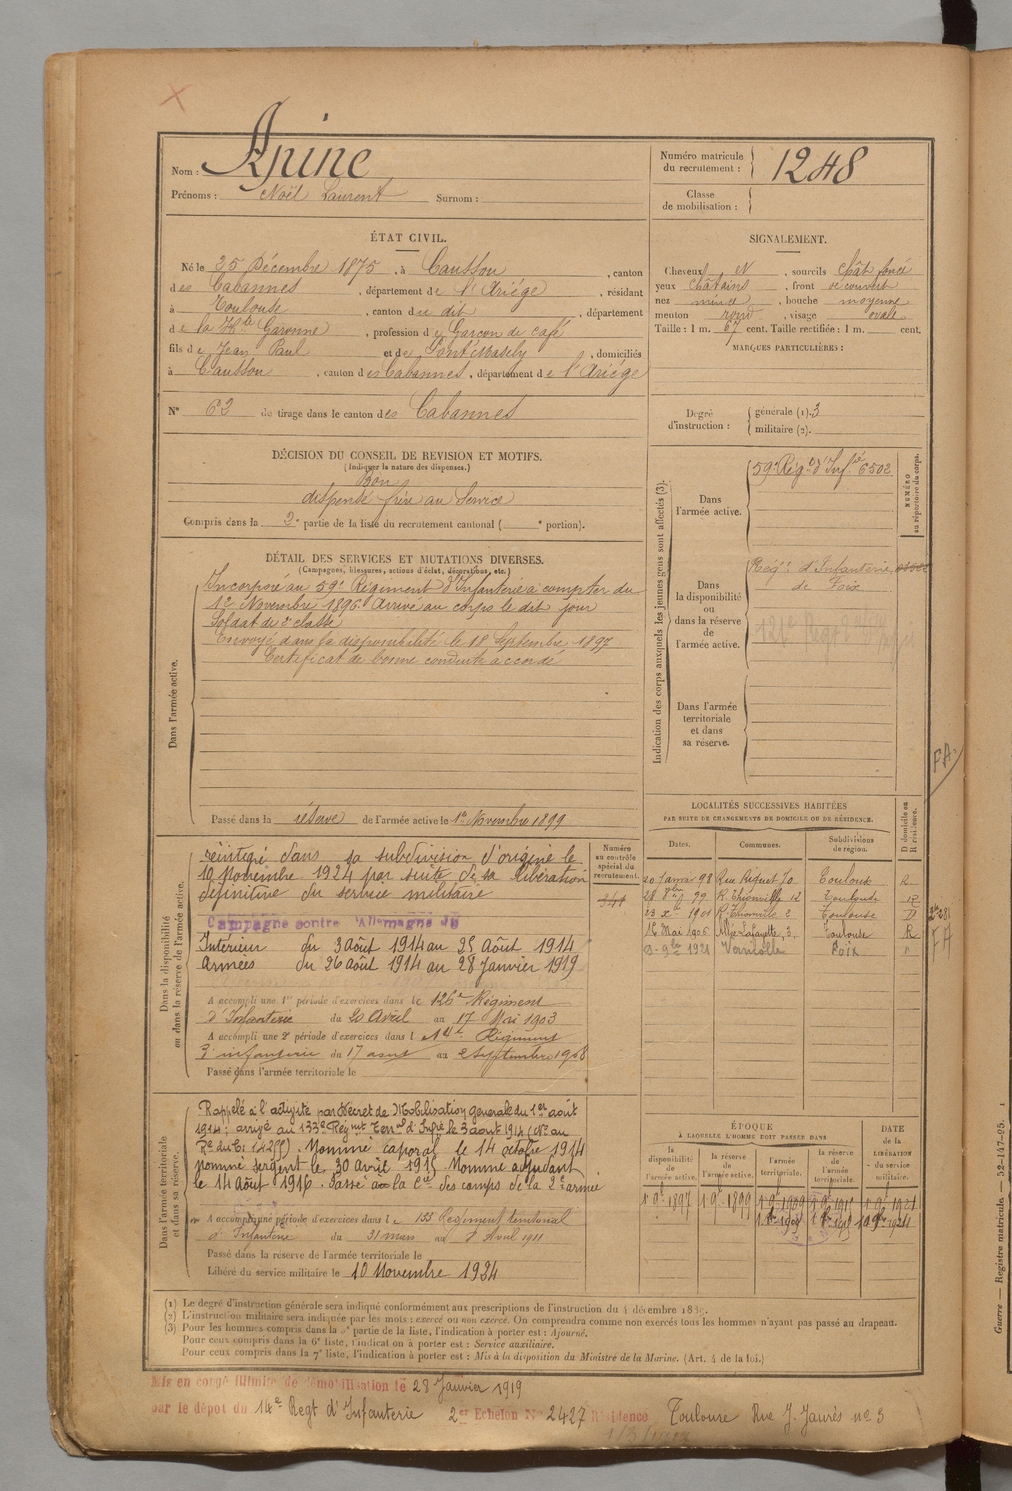 Nom : Apine
Prénoms : Noël Laurent Surnom :
Numéro matricule du recrutement : 1248
Classe de mobilisation :
ÉTAT CIVIL.
Né le 25 Décembre 1875, à Caussou, canton
des Cabannes, département de l'Ariége, résidant
à Toulouse, canton du dit, département
de la Hte Garonne, profession de Garçon de café
fils de Jean Paul et de, domiciliés
à Caussou, canton des Cabannes, département de l'Ariége
N° 62 de tirage dans le canton des Cabannes
SIGNALEMENT.
Cheveux N, sourcils chât foncé
yeux châtains, front découvert
nez mince, bouche moyenne
menton rond, visage ovale
Taille : 1 m. 67 cent. Taille rectifiée : 1 m. cent.
MARQUES PARTICULIÈRES :
Degré d'instruction : générale (1). 3
militaire (2).
DÉCISION DU CONSEIL DE REVISION ET MOTIFS.
(Indiquer la nature des dispenses.)
Bon
dispensé frère au Service
Compris dans la 2e partie de la liste du recrutement cantonal ( e portion).
DÉTAIL DES SERVICES ET MUTATIONS DIVERSES.
(Campagnes, blessures, actions d'éclat, décorations, etc.)
Dans l'armée active.
Incorporé au 59e Régiment d'Infanterie à compter du
1er Novembre 1896. Arrivé au corps le dit jour
Soldat de 2e classe
Envoyé dans la disponibilité le 18 Septembre 1897
Certificat de bonne conduite accordé
Passé dans la réserve de l'armée active le 1er Novembre 1899
Indication des corps auxquels les jeunes gens sont affectés (3).
Dans l'armée active.
59e Régt d'Infie 6502
NUMÉRO au répertoire du corps.
Dans la disponibilité ou dans la réserve de l'armée active.
Régt d'Infanterie
de Foix
Dans l'armée territoriale et dans sa réserve.
Dans la disponibilité ou dans la réserve de l'armée active.
réintégré dans sa subdivision d'origine le
10 novembre 1924 par suite de sa libération
définitive du service militaire
Campagne contre l'Allemagne
Intérieur du 3 Août 1914 au 25 Août 1914
Armées du 26 Août 1914 au 28 Janvier 1919
A accompli une 1re période d'exercices dans le 126e Régiment
d'Infanterie du 20 Avril au 17 Mai 1903
A accompli une 2e période d'exercices dans l Régiment
d'infanterie du 17 août au 2 Septembre 1908
Passé dans l'armée territoriale le
Numéro au contrôle spécial du recrutement.
LOCALITÉS SUCCESSIVES HABITÉES
PAR SUITE DE CHANGEMENTS DE DOMICILE OU DE RÉSIDENCE.
Dates. Communes. Subdivisions de région. D domicile ou R résidence.
20 Janv 98 Rue Riquet 70 Toulouse R
28 8bre 99 R. Thionville 12 Toulouse R
23 Xre 1901 R. Thionville 2 Toulouse D
16 Mai 1906 Allée Lafayette, 3 Toulouse R
9bre 1921 Varilhes Foix D
FA
FA
Dans l'armée territoriale et dans sa réserve.
Rappelé à l'activité par décret de Mobilisation générale du 1er août
1914; arrivé au 133e Régmt Terral d'Infrie le 3 août 1914 (No au
Re du C: 14255). Nommé caporal le 14 octobre 1914
nommé sergent le 30 avril 1915 Nommé adjudant
le 14 Août 1916. Passé à la Cie des camps de la 2e armée
A accompli une période d'exercices dans le 133 Régiment territorial
d'Infanterie du 31 mars au 8 Avril 1911
Passé dans la réserve de l'armée territoriale le
Libéré du service militaire le 10 Novembre 1924
ÉPOQUE
À LAQUELLE L'HOMME DOIT PASSER DANS
la disponibilité de l'armée active. la réserve de l'armée active. l'armée territoriale. la réserve de l'armée territoriale.
DATE de la LIBÉRATION du service militaire.
1 9e 1897 1 9e 1899 1 9e 1909 1 9e 1915 1 9e 1921
10 9bre 1924
(1) Le degré d'instruction générale sera indiqué conformément aux prescriptions de l'instruction du 4 décembre 1889.
(2) L'instruction militaire sera indiquée par les mots : exercé ou non exercé. On comprendra comme non exercés tous les hommes n'ayant pas passé au drapeau.
(3) Pour les hommes compris dans la 5e partie de la liste, l'indication à porter est : Ajourné.
Pour ceux compris dans la 6e liste, l'indication à porter est : Service auxiliaire.
Pour ceux compris dans la 7e liste, l'indication à porter est : Mis à la disposition du Ministre de la Marine. (Art. 4 de la loi.)
Mis en congé illimité de démobilisation le 28 Janvier 1919
par le dépôt du 14e Regt d'Infanterie 2er Echelon No 2427 Résidence Toulouse Rue J. Jaurès no 3
Guerre — Registre matricule. — 52-147-95.